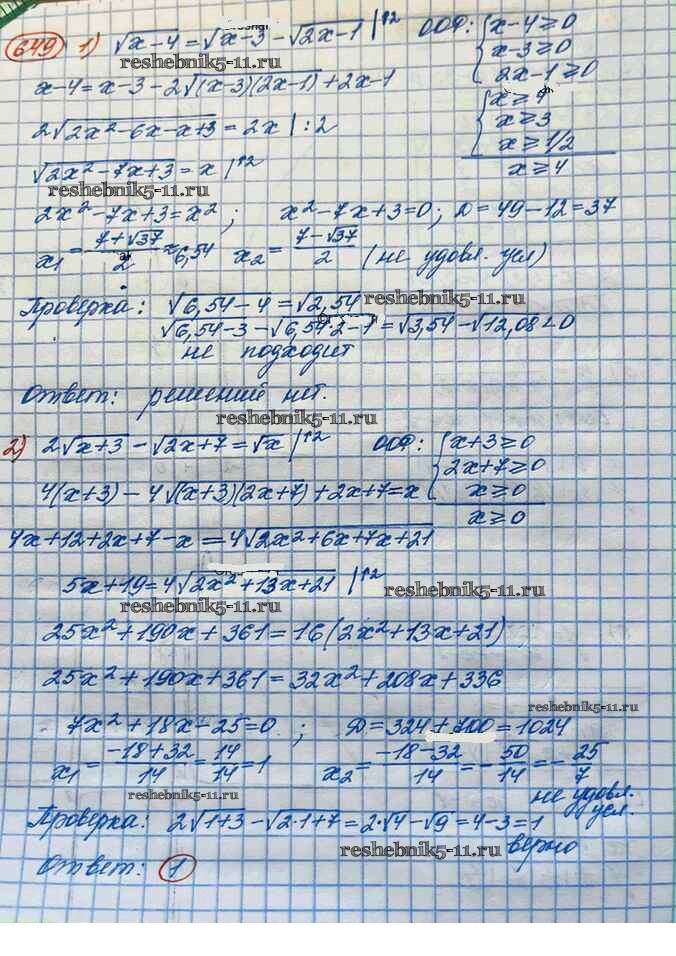 649 1) √x-4 = √x-3 - √2x-1 |↑2 ООФ: { x-4≥0
x-3≥0
2x-1≥0
reshebnik5-11.ru
x-4 = x-3 - 2√(x-3)(2x-1) + 2x-1
{ x≥4
x≥3
x≥1/2
x≥4
2√2x²-6x-x+3 = 2x | :2
√2x²-7x+3 = x |↑2
reshebnik5-11.ru
2x²-7x+3=x² ; x²-7x+3=0; D=49-12=37
x₁ = 7+√37/2 ≈ 6,54 x₂ = 7-√37/2 (не удовл. усл)
Проверка: √6,54-4 = √2,54
reshebnik5-11.ru
√6,54-3 - √6,54·2-1 = √3,54 - √12,08 < 0
не подходит
Ответ: решений нет.
reshebnik5-11.ru
2) 2√x+3 - √2x+7 = √x |↑2 ООФ: { x+3≥0
2x+7≥0
x≥0
x≥0
4(x+3) - 4√(x+3)(2x+7) + 2x+7 = x
4x+12+2x+7-x = 4√2x²+6x+7x+21
5x+19 = 4√2x²+13x+21 |↑2
reshebnik5-11.ru
reshebnik5-11.ru
25x²+190x+361 = 16(2x²+13x+21)
25x²+190x+361 = 32x²+208x+336
reshebnik5-11.ru
7x²+18x-25=0 ; D=324+700=1024
x₁ = -18+32/14 = 14/14 = 1 x₂ = -18-32/14 = -50/14 = -25/7
не удовл.
усл.
reshebnik5-11.ru
Проверка: 2√1+3 - √2·1+7 = 2·√4 - √9 = 4-3 = 1
верно
reshebnik5-11.ru
Ответ: 1